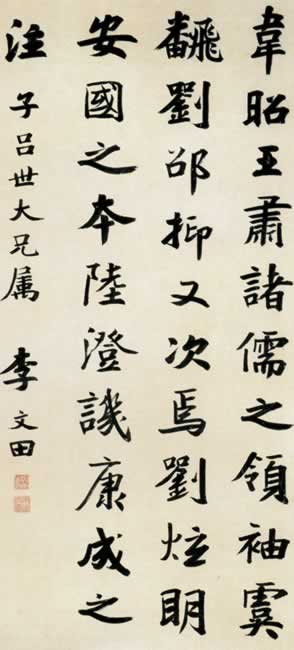 韋昭王肅諸儒之領袖虞
飜劉邵抑又次焉劉炫明
安國之本陸澄譏康成之
注
子呂世大兄属 李文田